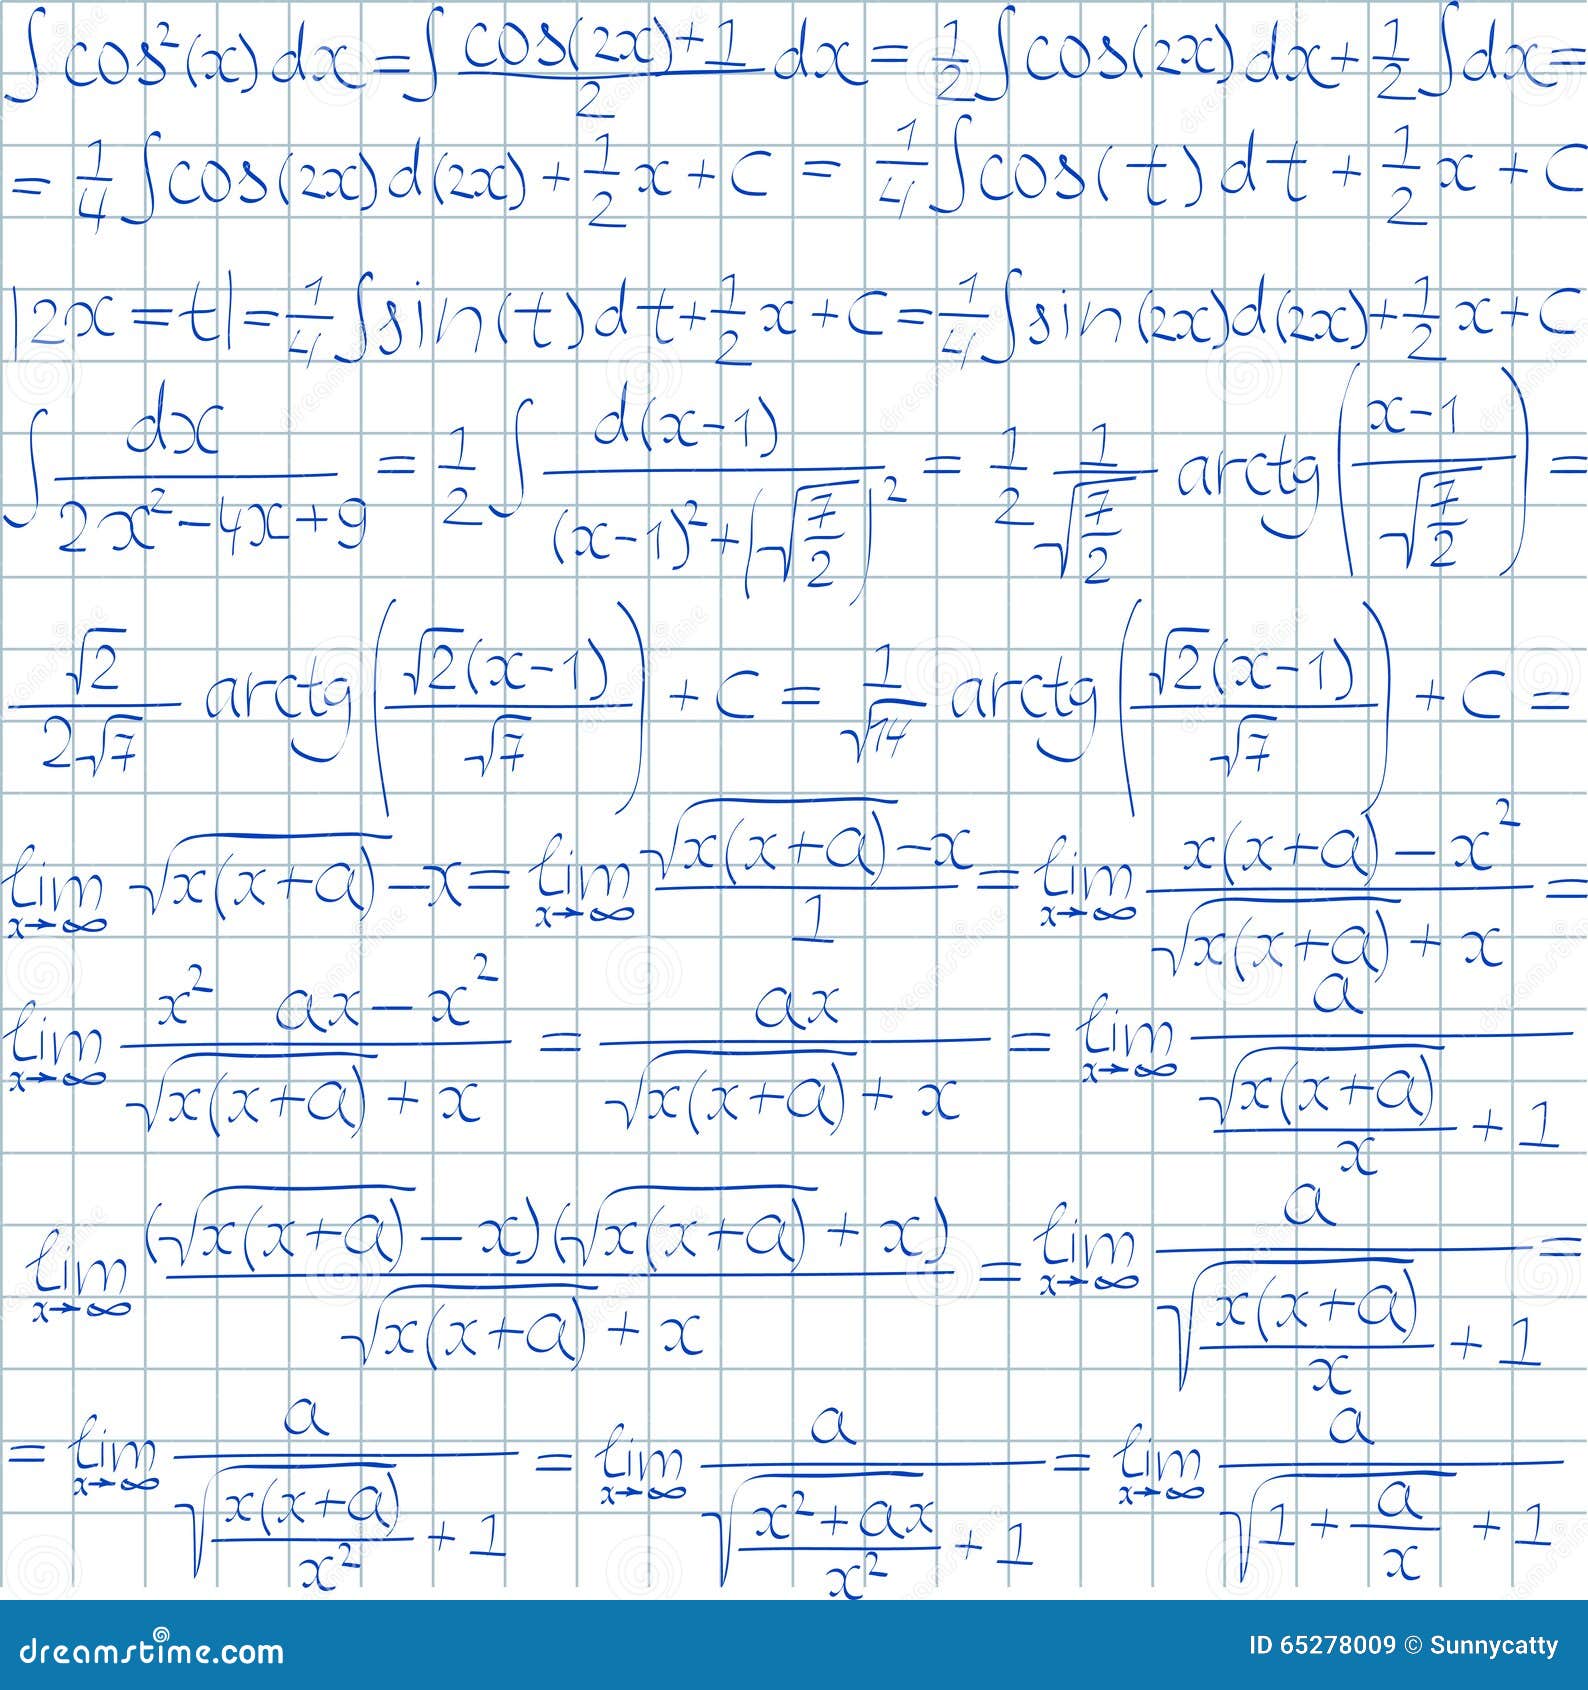 ∫cos²(x)dx = ∫(cos(2x)+1)/2 dx = 1/2 ∫cos(2x)dx + 1/2 ∫dx =
= 1/4 ∫cos(2x)d(2x) + 1/2 x + C = 1/4 ∫cos(t)dt + 1/2 x + C
|2x = t| = 1/4 ∫sin(t)dt + 1/2 x + C = 1/4 ∫sin(2x)d(2x) + 1/2 x + C
∫ dx/(2x²-4x+9) = 1/2 ∫ d(x-1)/((x-1)²+(√(7/2))²) = 1/2 1/√(7/2) arctg((x-1)/√(7/2)) =
√2/(2√7) arctg(√2(x-1)/√7) + C = 1/√14 arctg(√2(x-1)/√7) + C =
lim x→∞ √(x(x+a)) - x = lim x→∞ (√(x(x+a)) - x)/1 = lim x→∞ (x(x+a) - x²)/(√(x(x+a)) + x) =
lim x→∞ (x² ax - x²)/(√(x(x+a)) + x) = ax/(√(x(x+a)) + x) = lim x→∞ a/(√(x(x+a))/x + 1)
lim x→∞ (√(x(x+a)) - x)(√(x(x+a)) + x)/(√(x(x+a)) + x) = lim x→∞ a/(√(x(x+a)/x) + 1) =
= lim x→∞ a/(√(x(x+a)/x²) + 1) = lim x→∞ a/(√((x²+ax)/x²) + 1) = lim x→∞ a/(√(1 + a/x) + 1)
dreamstime.com ID 65278009 © Sunnycatty